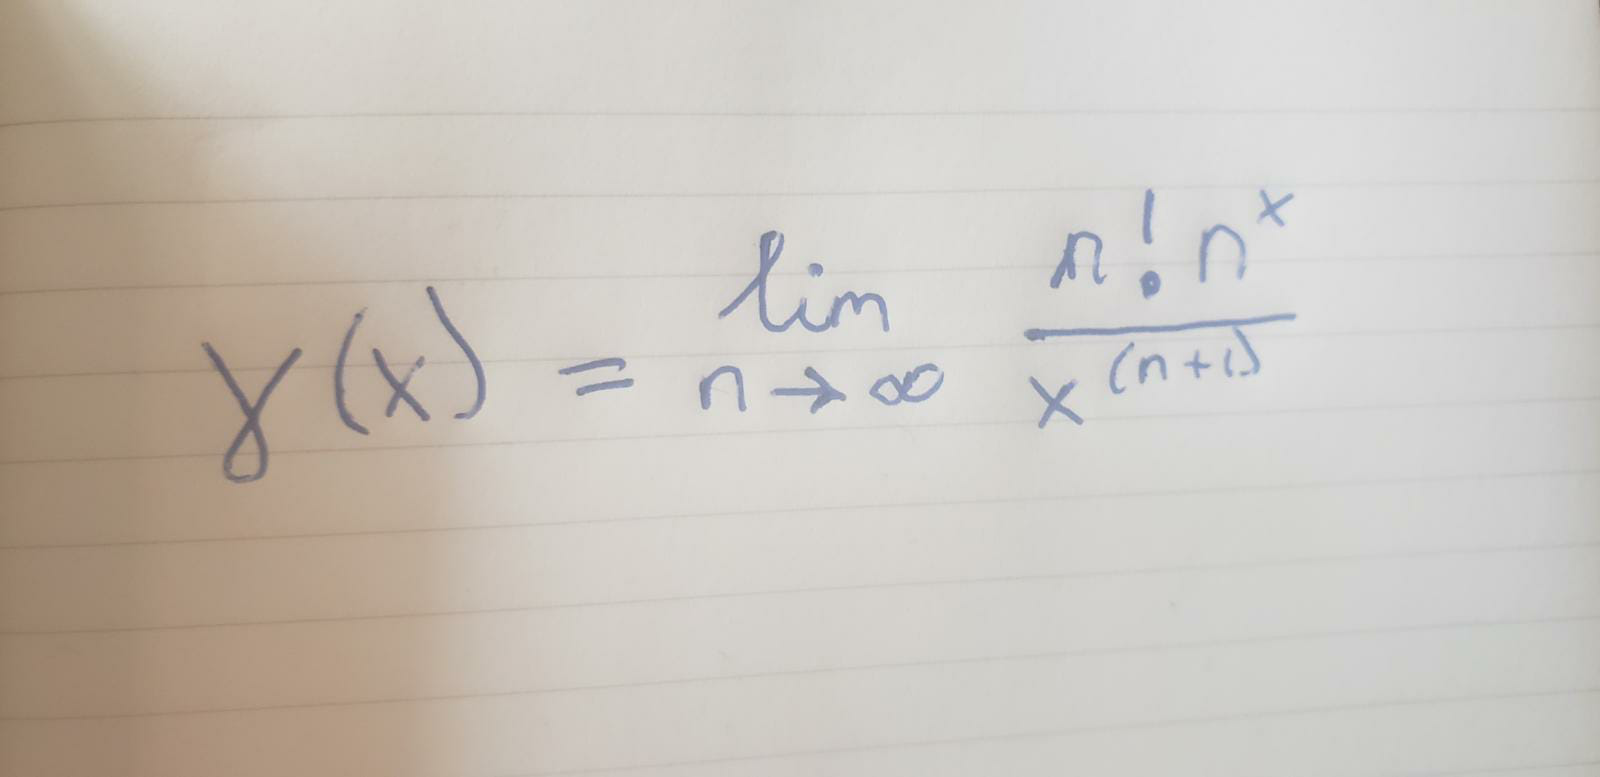 γ(x) = lim n→∞ n! n^x / x^(n+1)